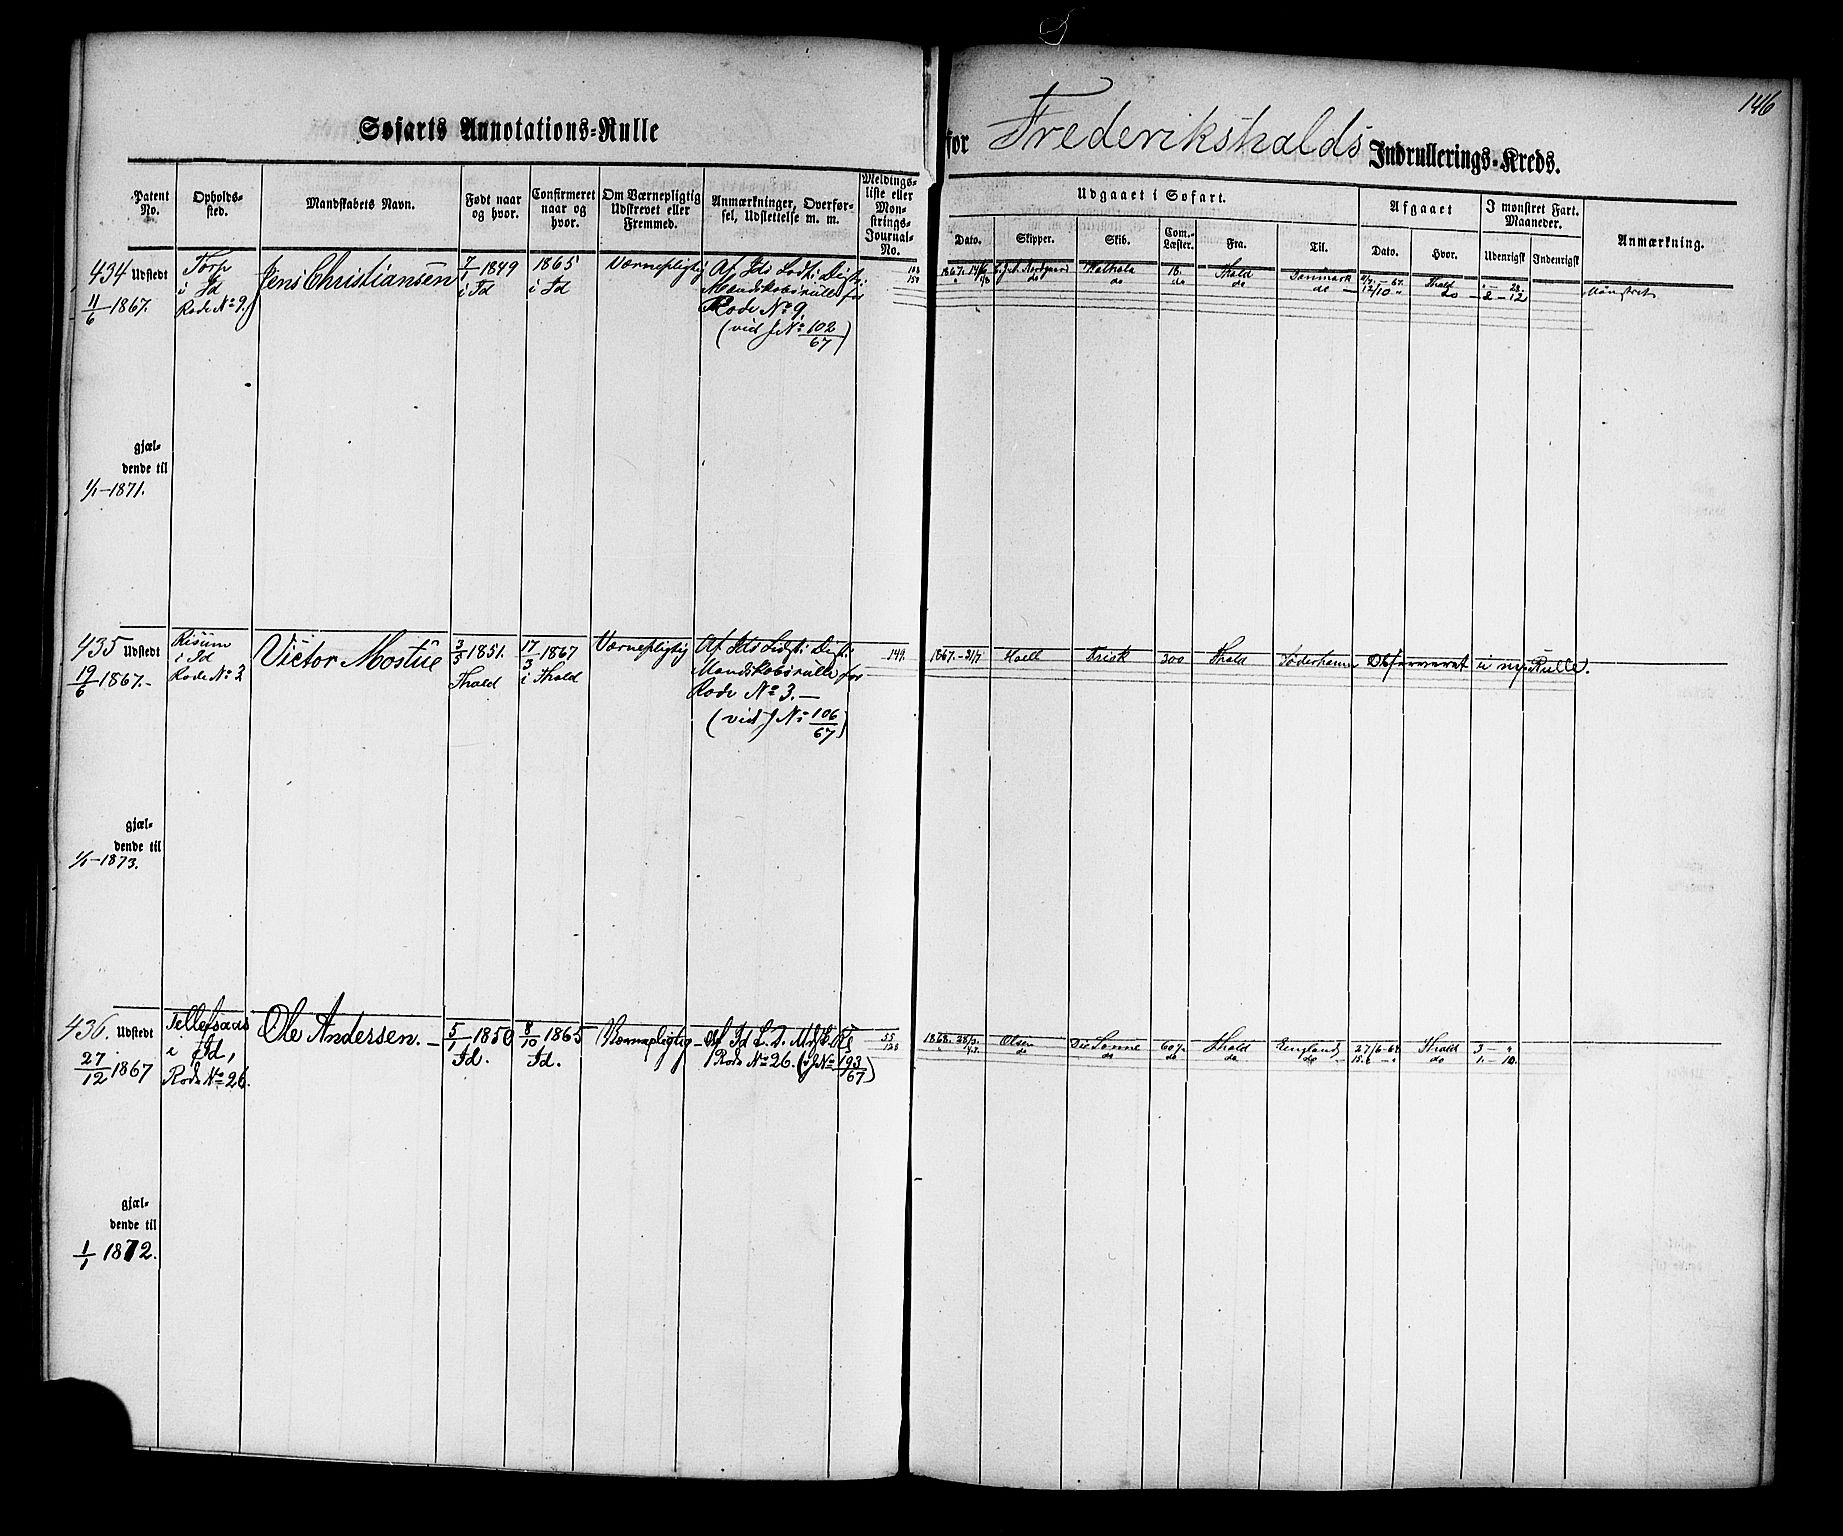 146
Søfarts Annotations-Rulle for Frederikshalds Indrullerings-Kreds.
Patent No.
Opholds-sted.
Mandskabets Navn.
Født naar og hvor.
Confirmeret naar og hvor.
Om Værnepligtig Udskrevet eller Fremmed.
Anmærkninger, Overførsel, Udslettelse m. m.
Meldingsliste eller Mønstrings-Journal-No.
Udgaaet i Søfart.
Dato.
Skipper.
Skib.
Com.-Læster.
Fra.
Til.
Afgaaet
Dato.
Hvor.
I mønstret Fart. Maaneder.
Udenrigsk
Indenrigsk
Anmærkning.
434 Udstedt
11/6 -1867.
Torp
i Id
Rode No 9.
Jens Christiansen
7/1 1849
i Id
1865
i Id
Værnepligtig
Af Ids Lodsti: Distr:
Mandskabsrulle for
Rode No 9.
(vid J No 102/67)
1867. 14/6
Nordgaard
18.
Fhald
Danmark
Fhald
" - 28.
do
do
do
do
do
12/10 "
do
2 - 12
Mønstret
gjæl-
dende til
1/1-1871.
435 Udstedt
19/6 1867.-
Risum
i Id
Rode No 3
Victor Mostue
3/5 1851.
Fhald
17/3 1867
i Fhald
Værnepligtig
Af Ids Lodsti: Distr:
Mandskabsrulle for
Rode No 3.-
(vid J No 106/67)
149.
1867.-31/7
Moell
Frisk
300
Fhald
Søderhamn
Observeret i ny Rulle.
gjæl-
dende til
1/1-1873.
436. Udstedt
27/12 1867
Tellefsaas
i Id,
Rode No 26.
Ole Andersen.-
5/1 1850
Id.
8/10 1865
Id.
Værnepligtig
af Id L. D. M.
Rode No 26. (v J No 193/67)
55
128
1868.
Olsen
De Sonne
60
Fhald
England
27/6-68
Fhald
3 - "
do
do
do
do
do
do
1. - 10.
gjæl-
dende til
1/1 1872.